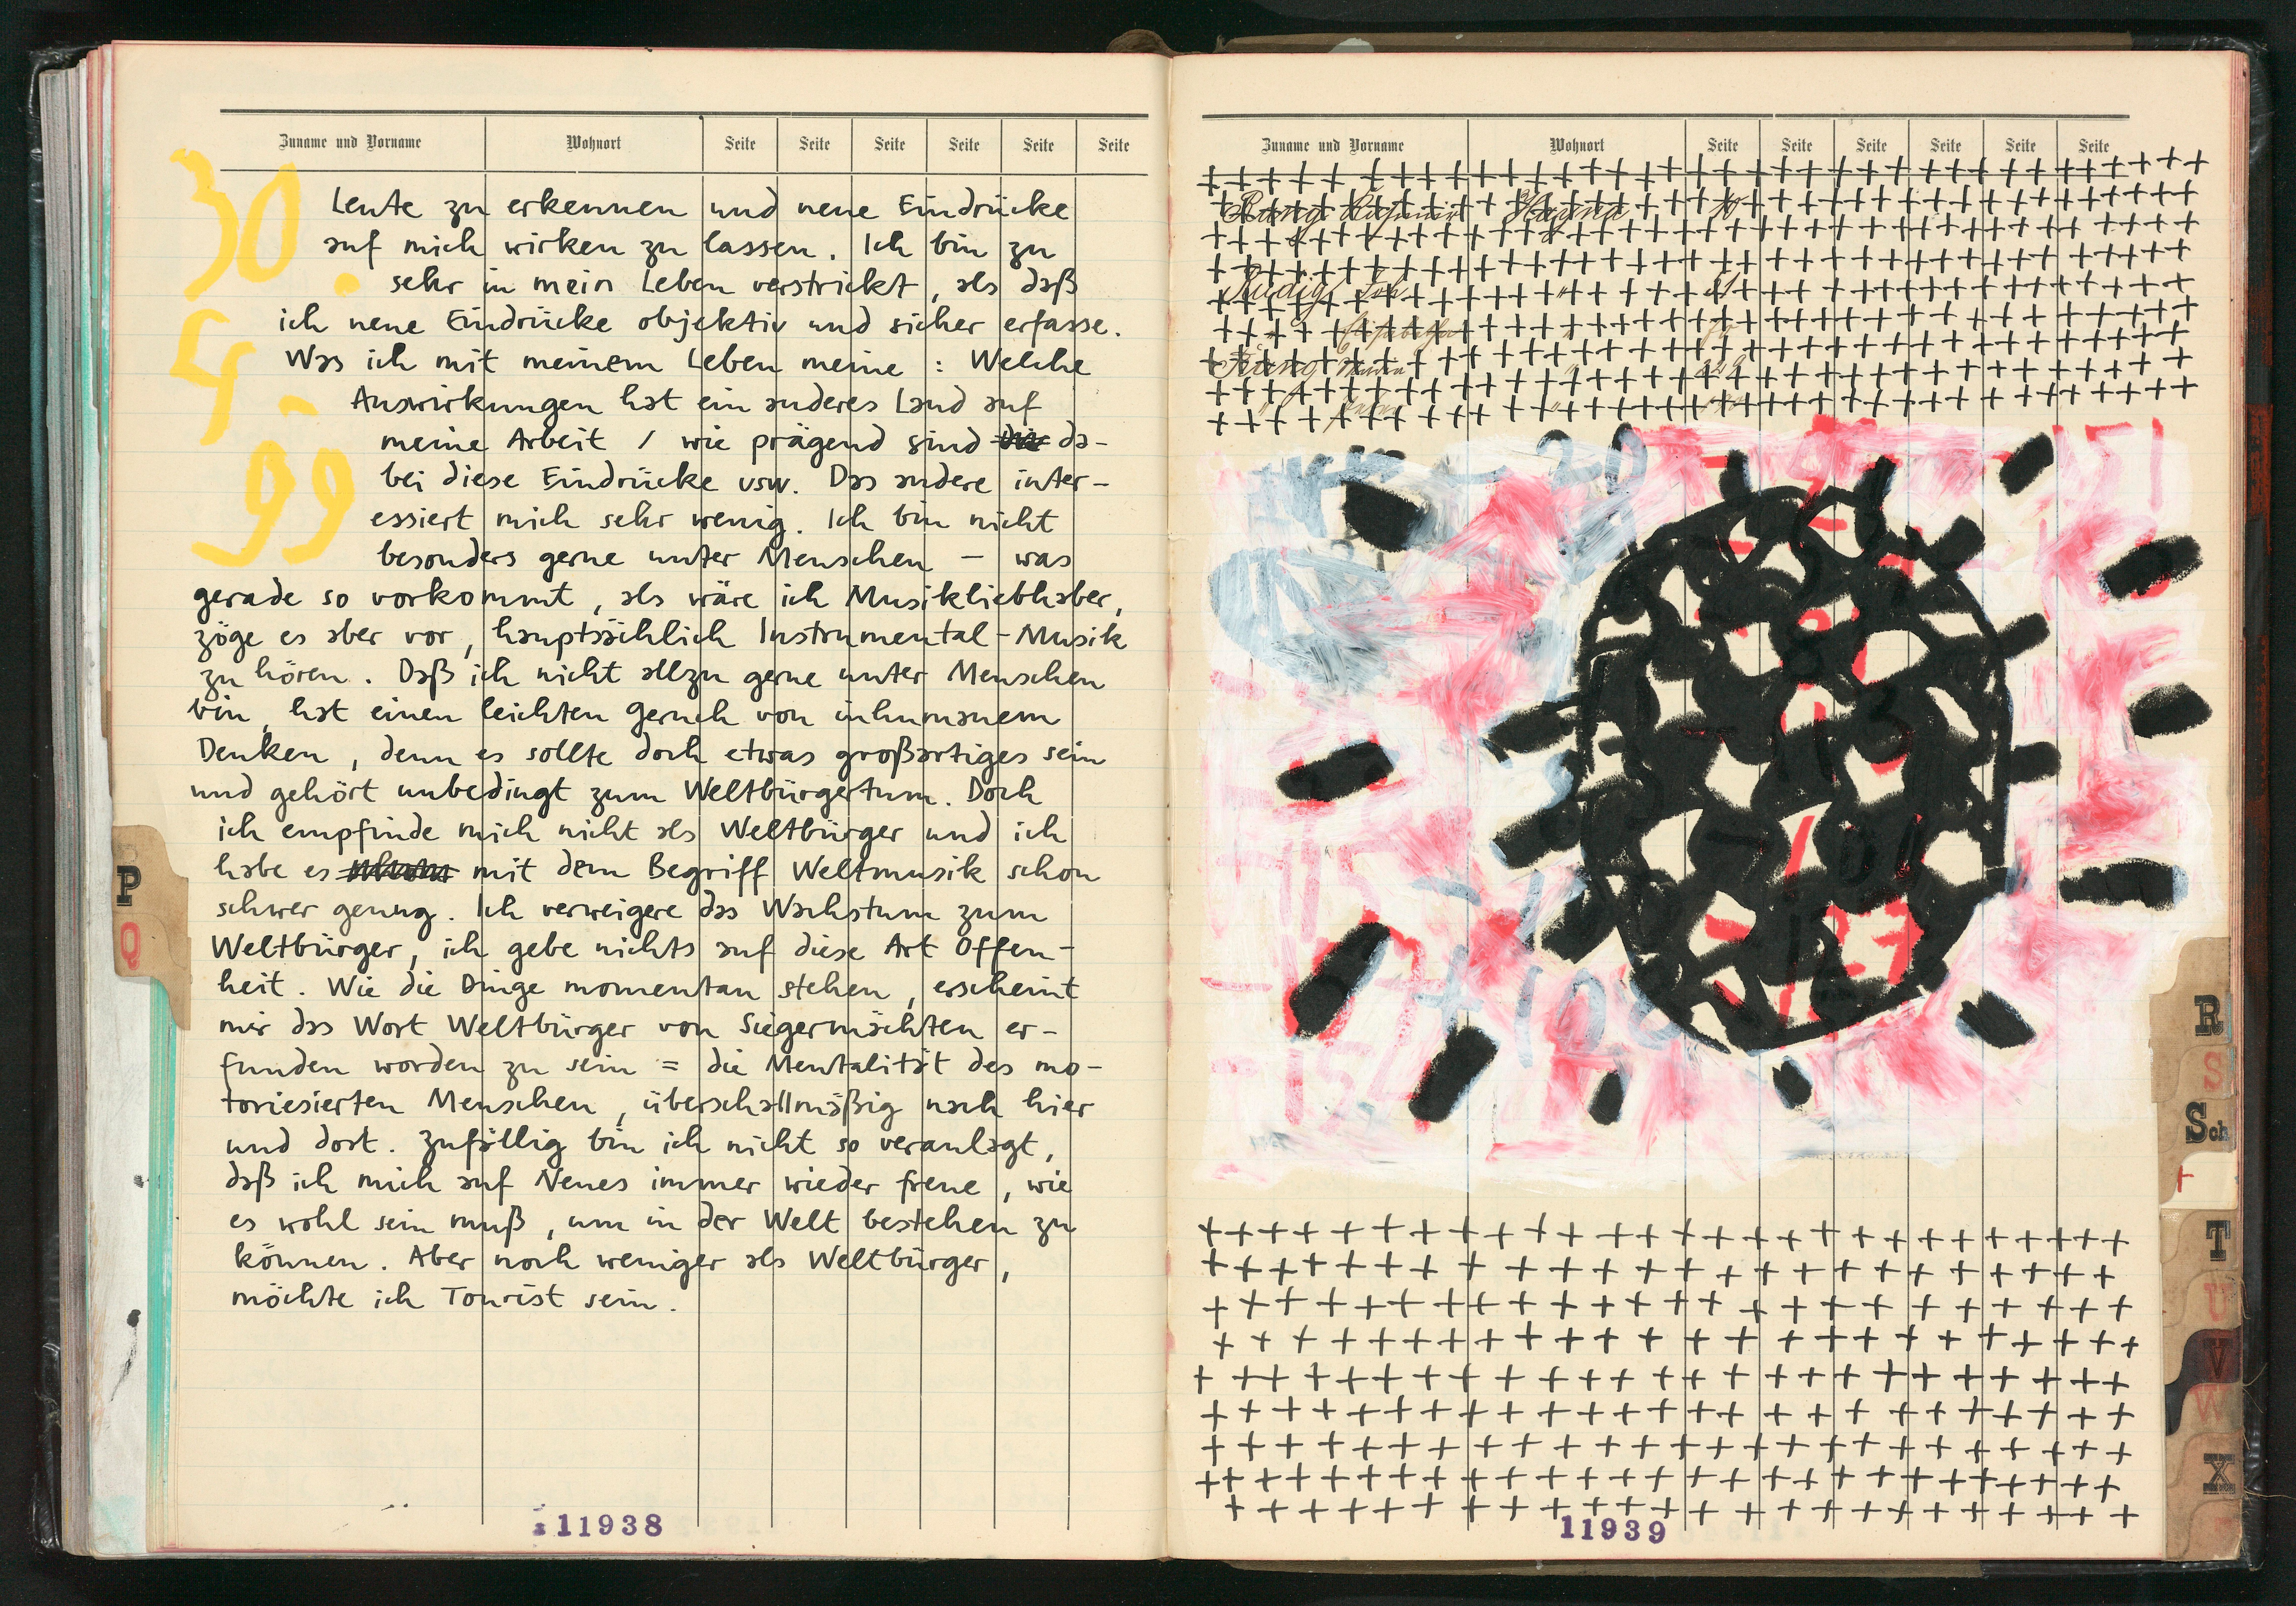 Zuname und Vorname Wohnort Seite Seite Seite Seite Seite Seite
30.
4.
99
Leute zu erkennen und neue Eindrücke
auf mich wirken zu lassen. Ich bin zu
sehr in mein Leben verstrickt, als daß
ich neue Eindrücke objektiv und sicher erfasse.
Was ich mit meinem Leben meine : Welche
Auswirkungen hat ein anderes Land auf
meine Arbeit / wie prägend sind da-
bei diese Eindrücke usw. Das andere inter-
essiert mich sehr wenig. Ich bin nicht
besonders gerne unter Menschen – was
gerade so vorkommt, als wäre ich Musikliebhaber,
zöge es aber vor, hauptsächlich Instrumental-Musik
zu hören. Daß ich nicht allzu gerne unter Menschen
bin, hat einen leichten Geruch von inhumanem
Denken, denn es sollte doch etwas großartiges sein
und gehört unbedingt zum Weltbürgertum. Doch
ich empfinde mich nicht als Weltbürger und ich
habe es mit dem Begriff Weltmusik schon
schwer genug. Ich verweigere das Wachstum zum
Weltbürger, ich gebe nichts auf diese Art Offen-
heit. Wie die Dinge momentan stehen, erscheint
mir das Wort Weltbürger von Siegermächten er-
funden worden zu sein = die Mentalität des mo-
toriesierten Menschen, überschallmäßig nach hier
und dort. Zufällig bin ich nicht so veranlagt,
daß ich mich auf Neues immer wieder freue, wie
es wohl sein muß, um in der Welt bestehen zu
können. Aber noch weniger als Weltbürger,
möchte ich Tourist sein.
11938
P
Q
Zuname und Vorname Wohnort Seite Seite Seite Seite Seite Seite
20
151
+108
11939
R
S
Sch
T
U
V
W
X